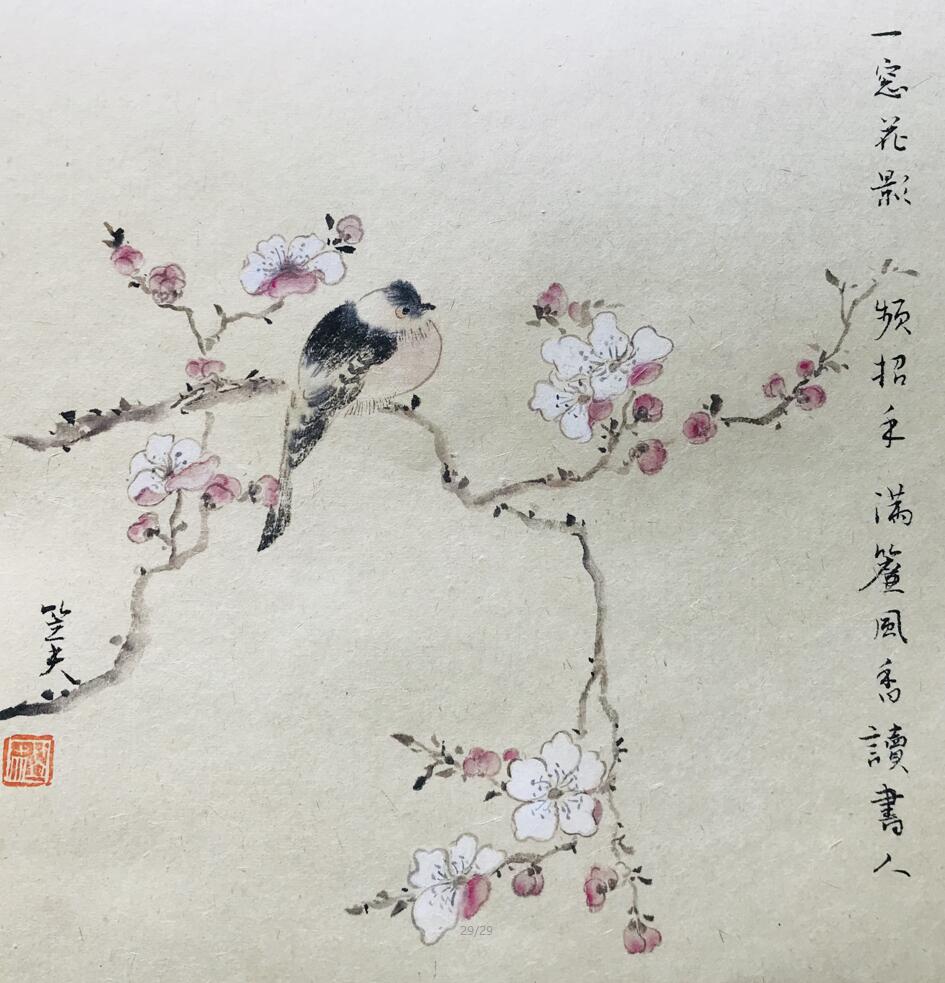 一窓花影 頻招手 滿簾風香讀書人
笠夫
29/29